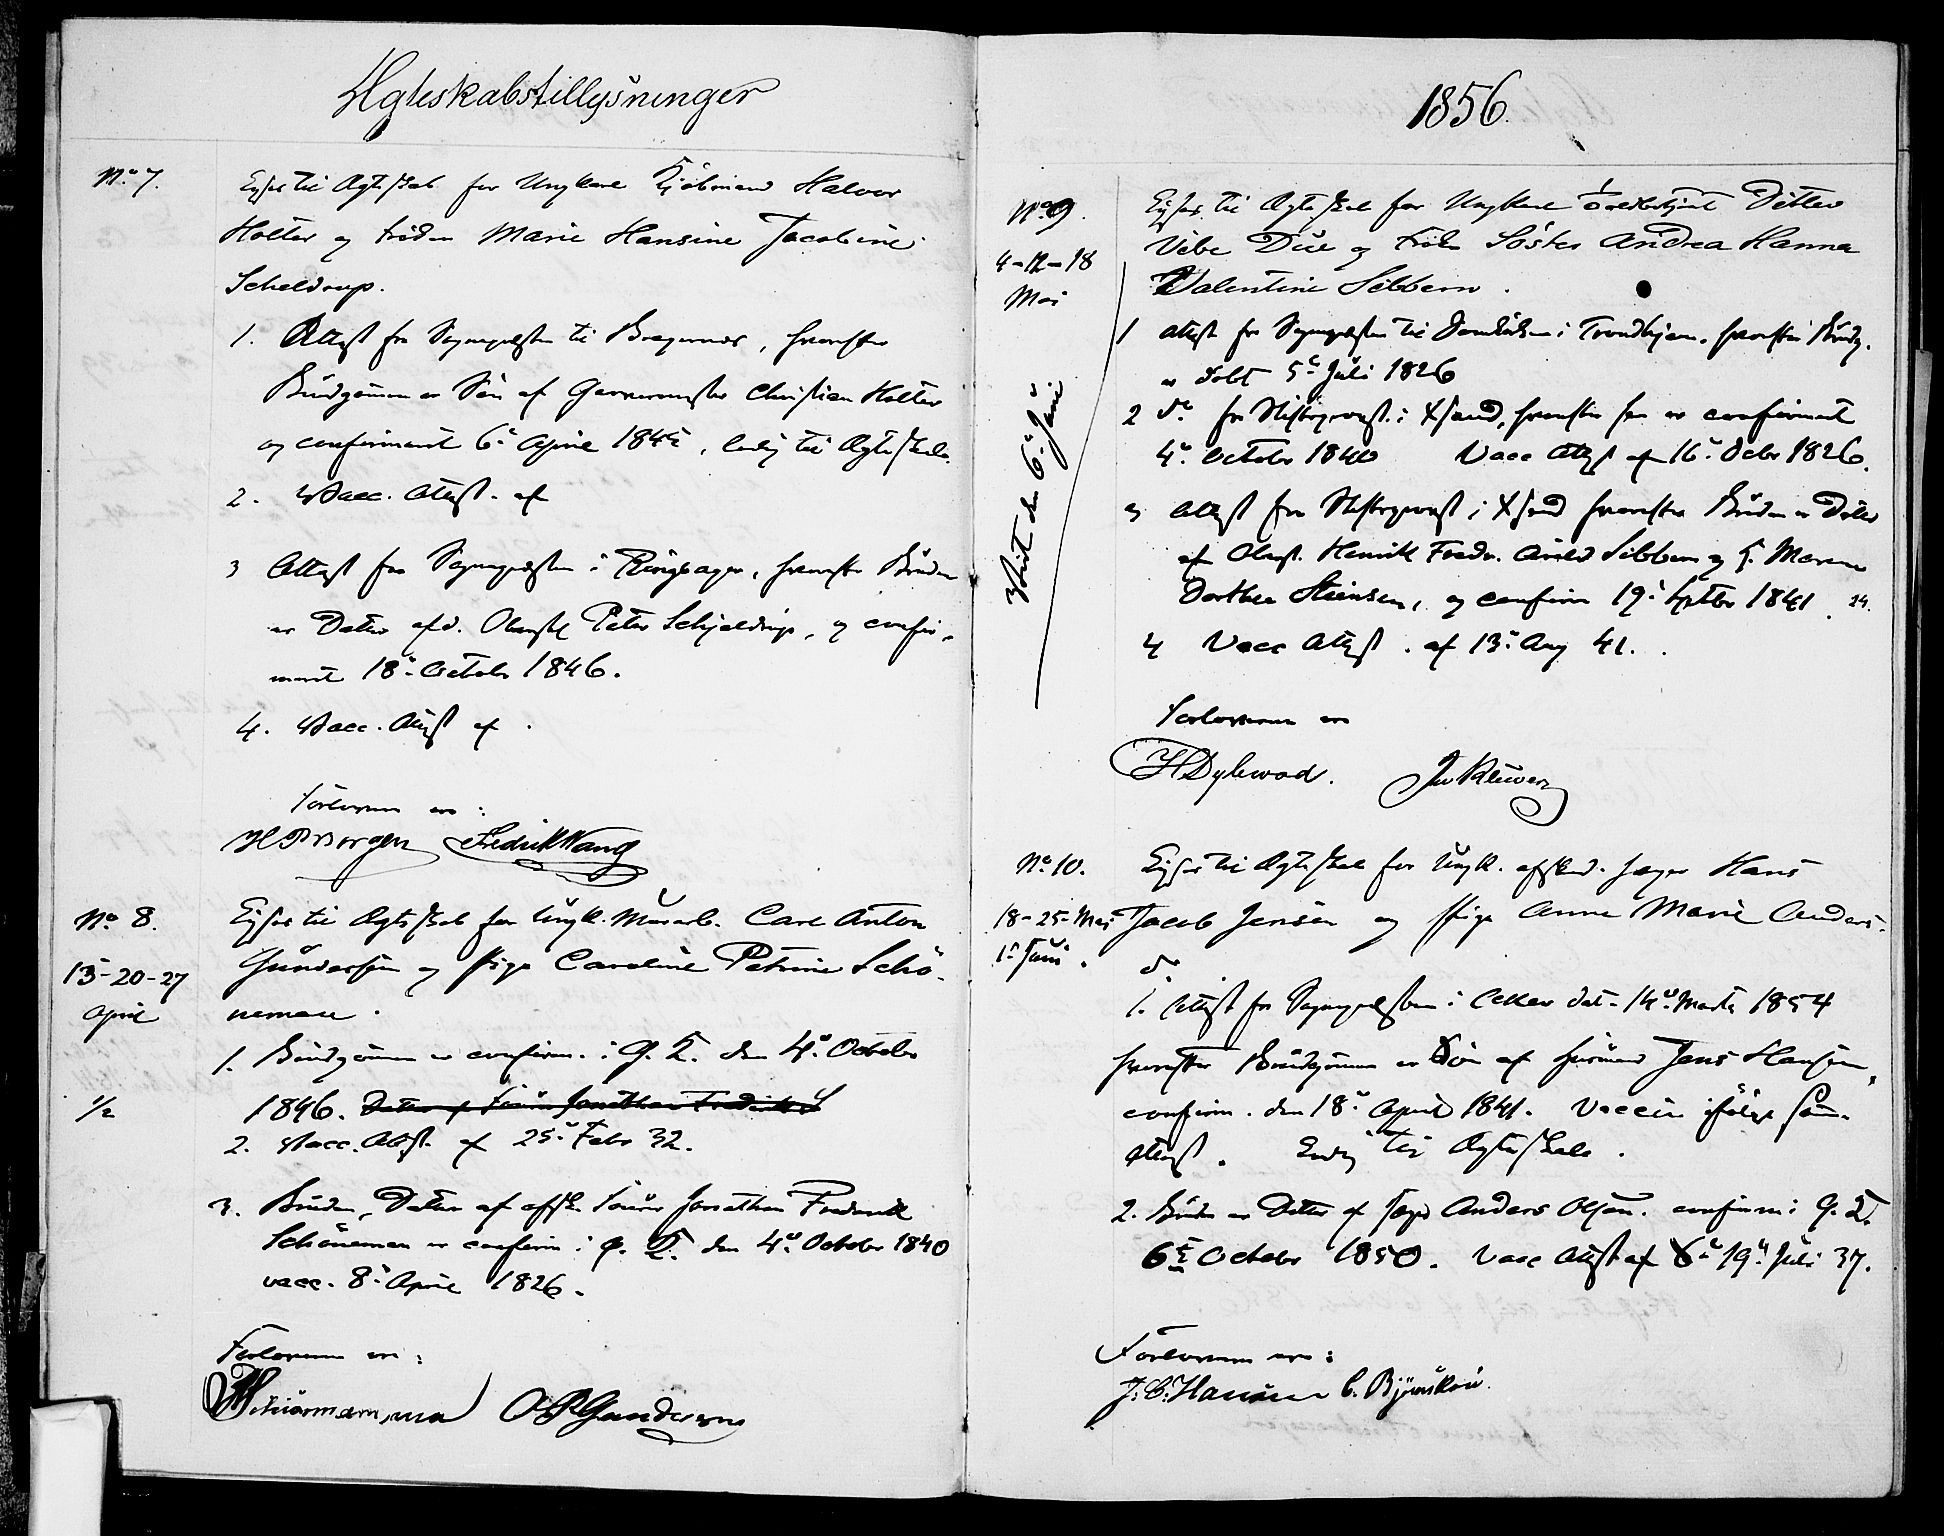 Ægteskabstillysninger
No. 7. Lyses til Ægteskab for Ungkarl Kjøbmand Halvor
Holter og frøken Marie Hansine Jacobine
Scheldrup.
1. Attest fra Sognepresten til Bragernes, hvorefter
Brudgommen er Søn af Garvermester Christian Holter
og confirmeret 6te April 1845, ledig til Ægteskab.
2. Vacc. Attest. af
3 Attest fra Sognepresten i Ringsager, hvorefter Bruden
er Datter afd. Peter Schjeldrup, og confir-
meret 18de October 1846.
4. Vacc. Attest af
Forlovere ere:
H P Borgen Fredrik Wang
No. 8. Lyses til Ægteskab for Ungk. Murarb. Carl Anton
13-20-27 Gundersen og Pige Caroline Petrine Schö-
April neman.
1. Brudgommen er confirm. i G. K. den 4de October
1/2 1846. Datter af Jonathan Frederik S
2. Vacc. Attest. af 25de Febr 32.
3. Bruden, Datter af afsk. Jonathan Frederik
Schöneman er confirm i G. K. den 4de October 1840
vacc. 8de April 1826.
Forlovere ere:
O P Gundersen
1856.
No. 9. Lyses til Ægteskab for Ungkarl Ditlev
4-12-18 Vibe Due og frøken Søster Andrea Hanna
Mai Valentine Sibbern.
1 Attest fra Sognepresten til Domkirken i Trondhjem, hvorefter Brudg.
er døbt 5te Juli 1826
2 do fra Stiftsprovst. i Xsand, hvorefter han er confirmeret
4de October 1840 Vacc Attest af 16de Octbr 1826.
3 Attest fra Stiftsprovst i Xsand hvorefter Bruden er Datter
af Henrik Fredr. Arild Sibbern og H. Maren
Dorthea Steensen, og confirm 19de Septbr 1841. 24.
4 Vacc Attest. af 13de Aug 41.
Viet den 6te Juni
Forloverne ere
H Dyhwad. Jw Klüwer
No. 10. Lyses til Ægteskab for Ungk. afsked. Jæger Hans
18-25- Mai Jacob Jensen og Pige Anne Marie Anders-
1ste Juni. d.
1. Attest fra Sognepresten i Asker dat. 14de Marts 1854
hvorefter Brudgommen er Søn af Husmand Jens Hansen,
confirm. den 18de April 1841. Vaccin ifølge samme
Attest. Ledig til Ægteskab.
2. Bruden er Datter af Anders Olsen. confirm i G. K.
6te October 1850. Vacc Attest af 19de Juli 37.
Forlovere ere:
J. C. Hansen C. Bjørnskou.